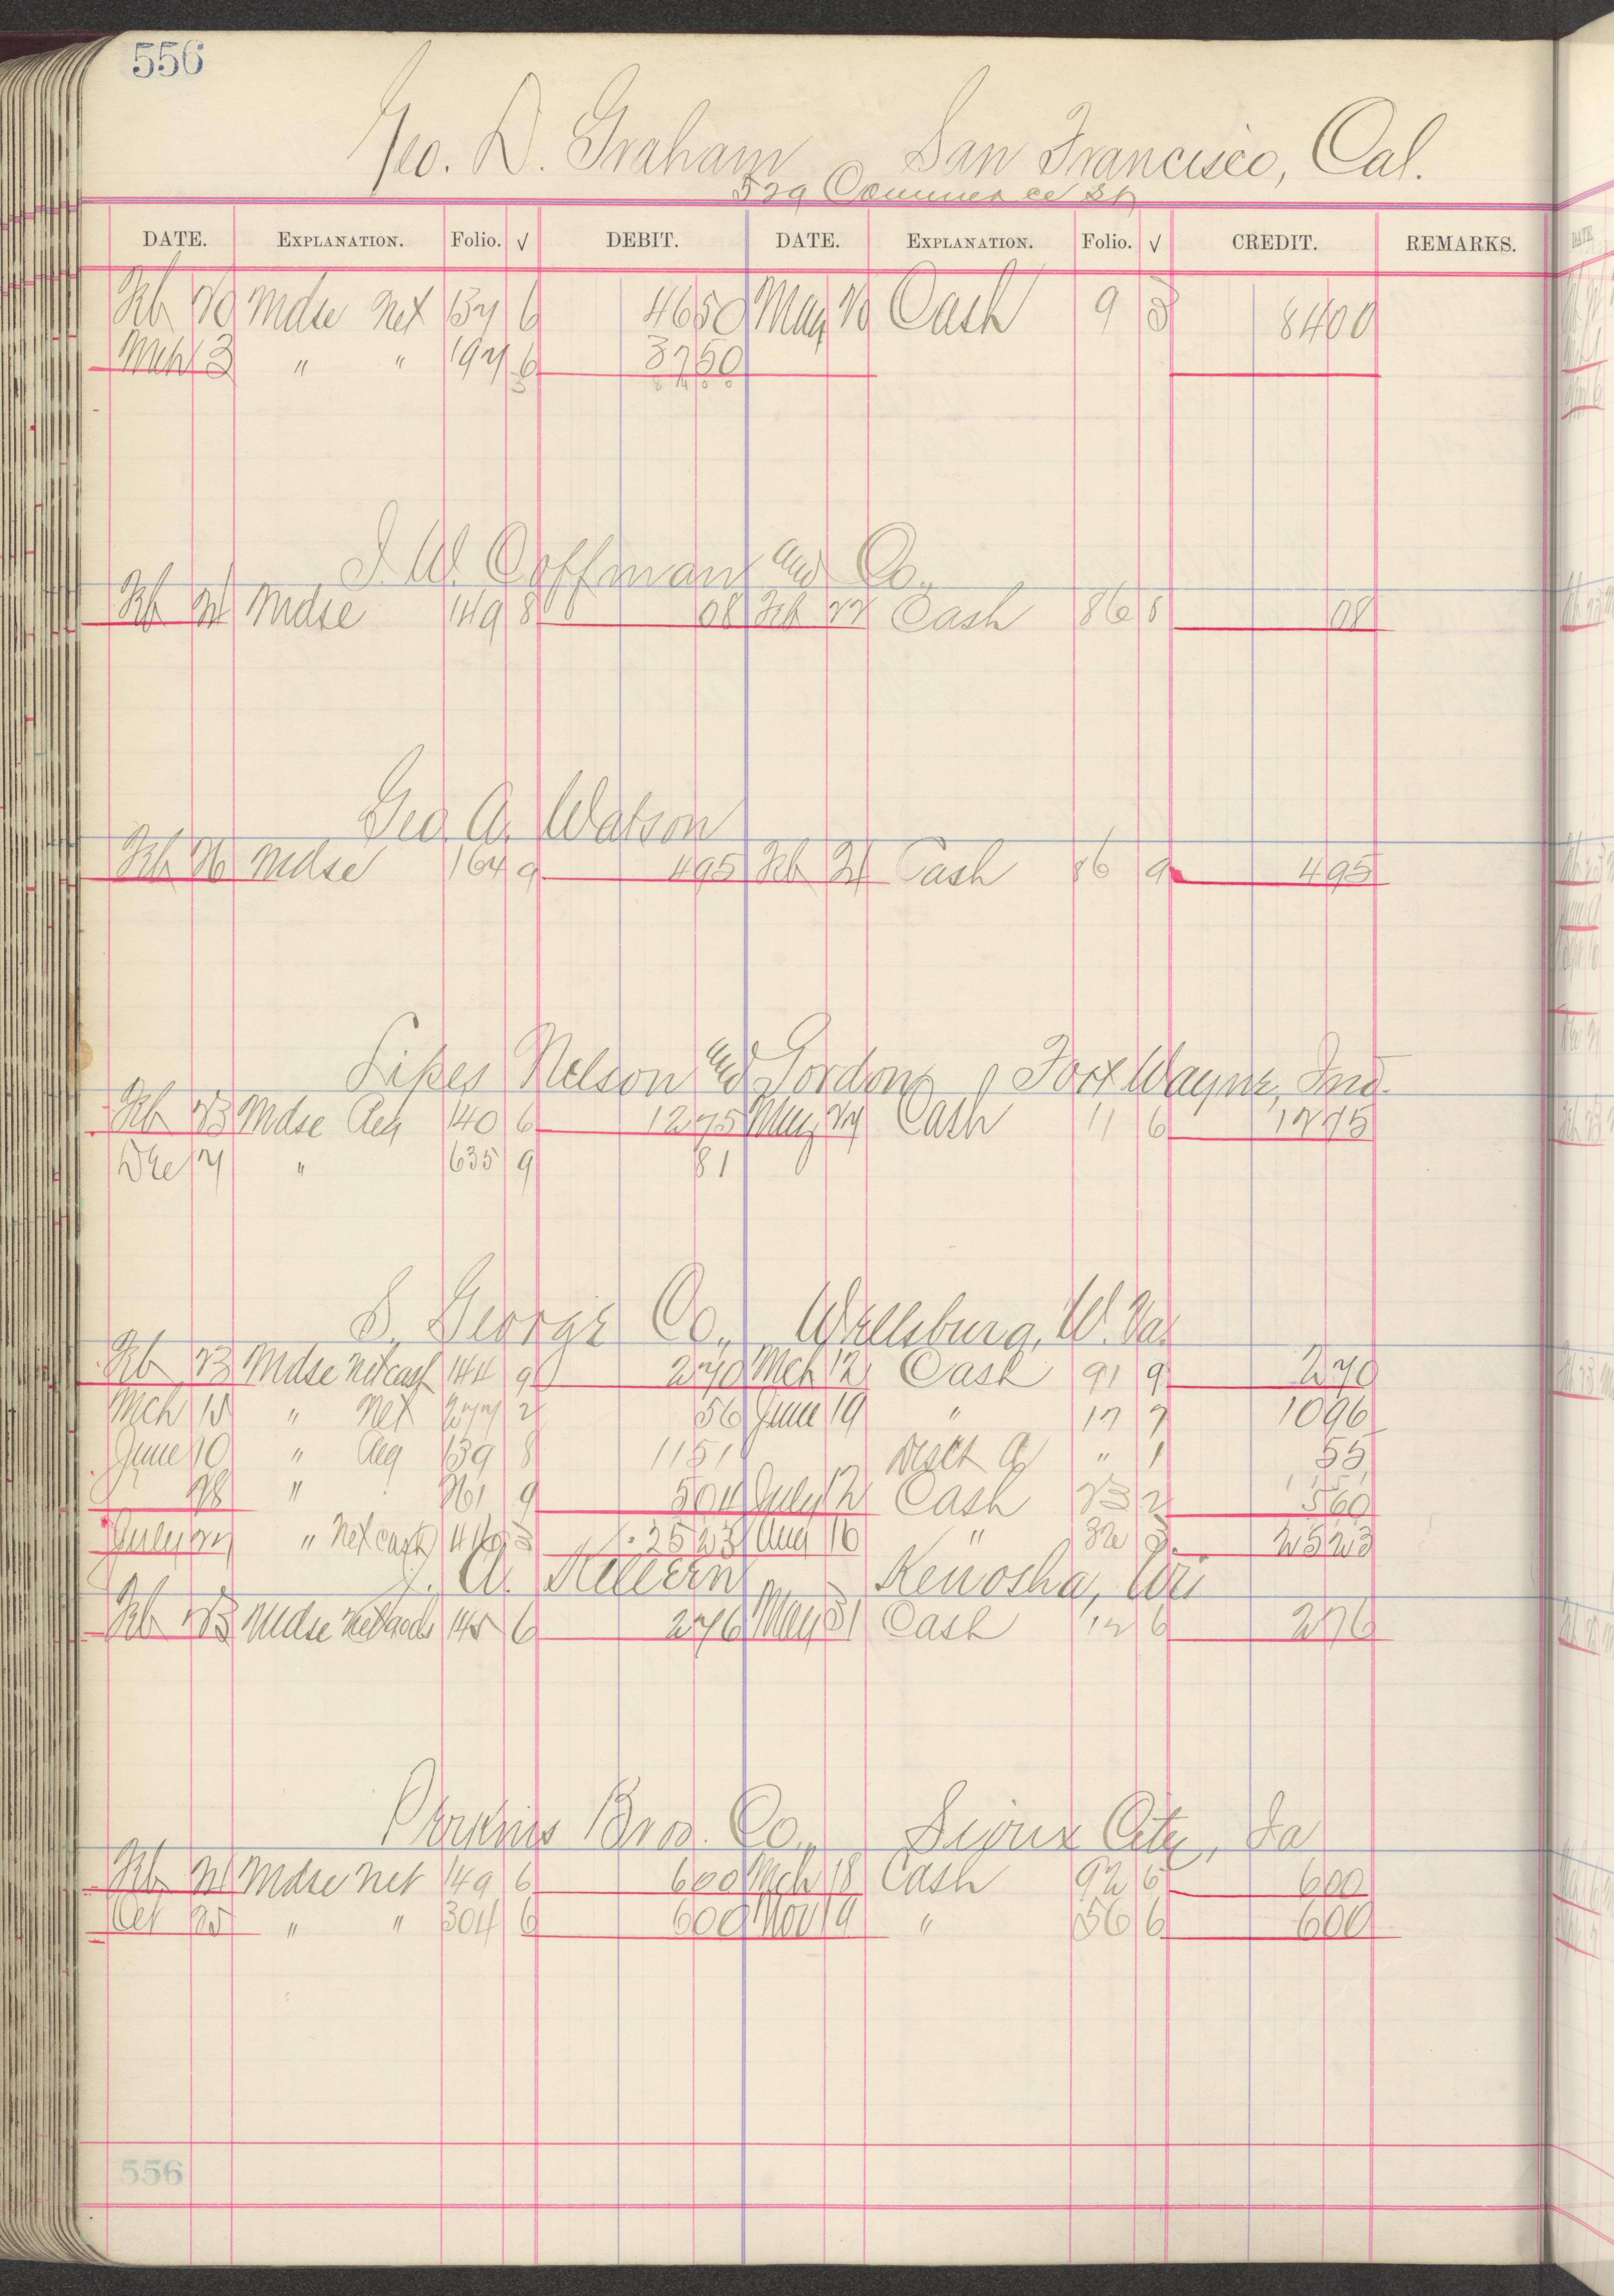 556
Geo. D. Graham San Francisco, Cal.
529 Commerce St
DATE. EXPLANATION. Folio. √ DEBIT. DATE. EXPLANATION. Folio. √ CREDIT. REMARKS.
Feb 20 Mdse Net 137 6 4650 May 20 Cash 9 3 8400
Mch 3 " " 197 6 3750
8400
I. W. Coffman and Co.,
Feb 24 Mdse 149 8 08 Feb 27 Cash 86 8 08
Geo. A. Watson
Feb 26 Mdse 164 9 495 Feb 24 Cash 86 9 495
Sikes Nelson and Gordon, Fort Wayne, Ind.
Feb 23 Mdse Reg 140 6 1275 May 27 Cash 11 6 1275
Dec 7 " 635 9 81
S. George Co., Wellsburg, W. Va.
Feb 23 Mdse Net cash 144 9 270 Mch 12 Cash 91 9 270
Mch 15 " Net 277 2 56 June 19 " 17 7 1096
June 10 " Reg 139 8 1151 Disct " 1 55
28 " 261 9 504 July 12 Cash 23 2 560
July 27 " Net cash 3 2523 Aug 10 " 32 3 2523
J. A. Kenosha, Wis
Feb 23 Mdse 145 6 276 May 31 Cash 12 6 276
Perkins Bros. Co., Sioux City, Ia
Feb 24 Mdse Net 149 6 600 Mch 18 Cash 92 6 600
Oct 25 " " 304 6 600 Nov 9 " 56 6 600
556